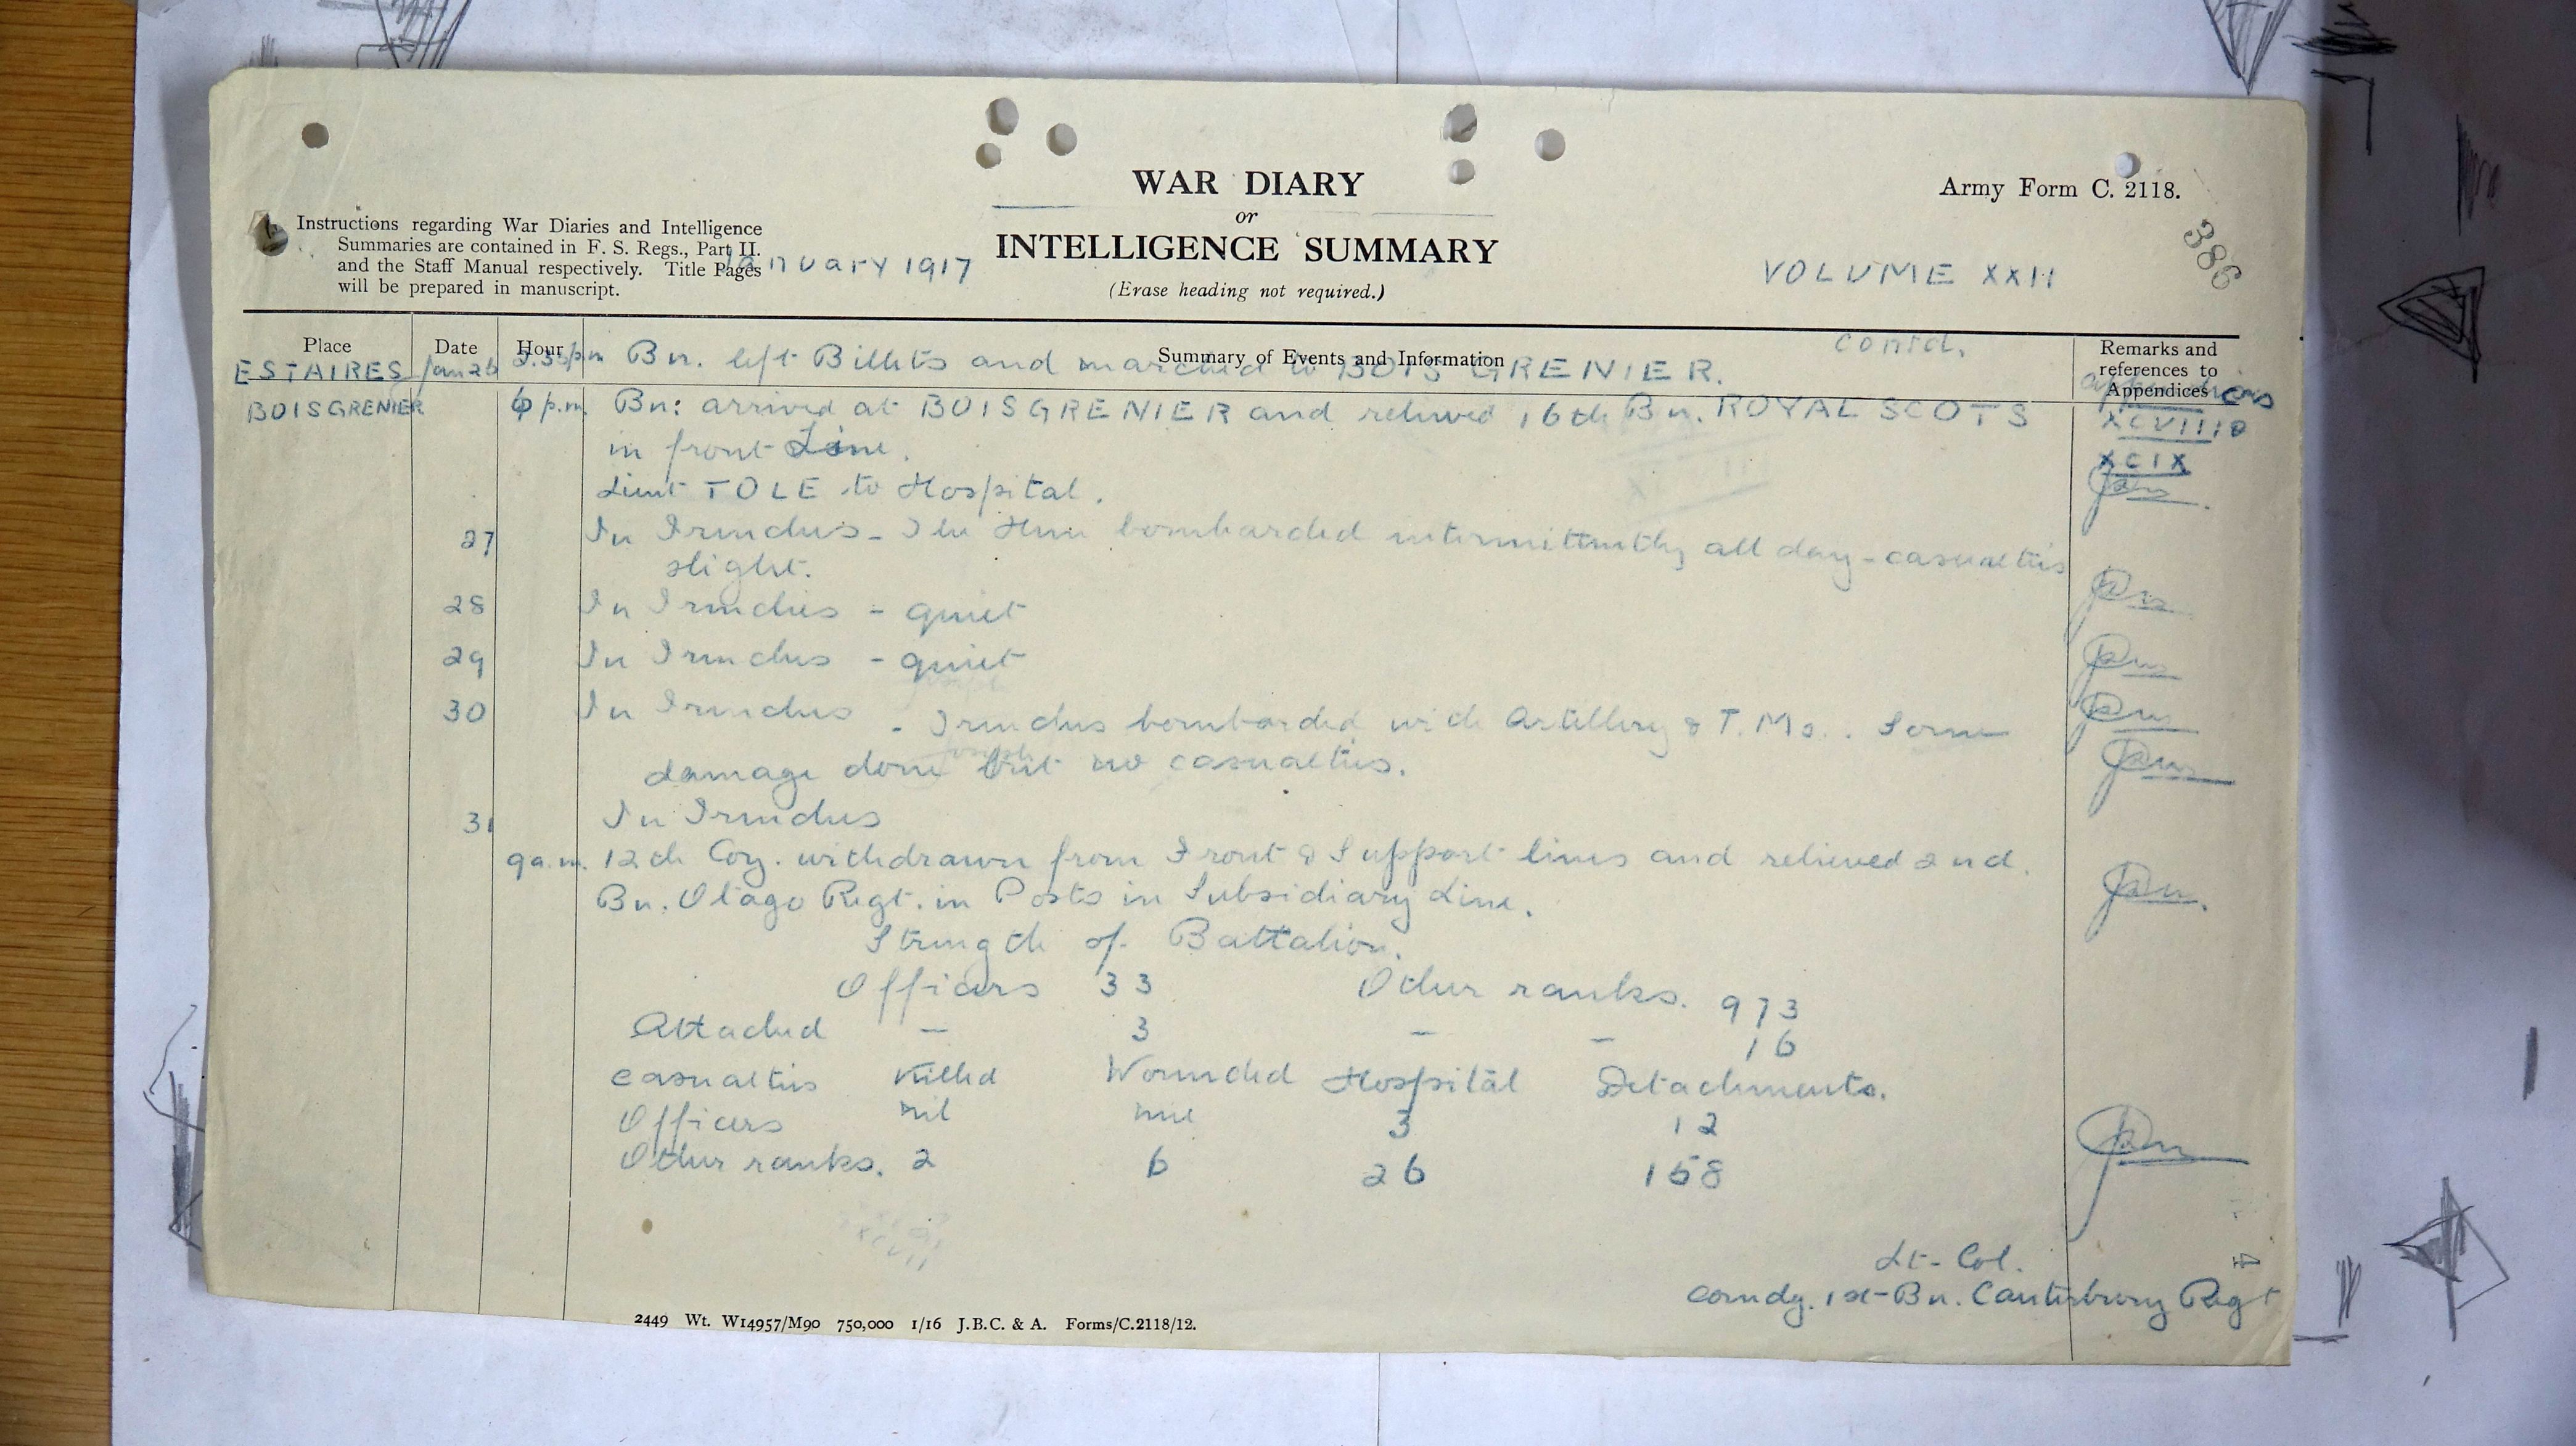 WAR DIARY
or
INTELLIGENCE SUMMARY
(Erase heading not required.)
Army Form C. 2118.
386
Instructions regarding War Diaries and Intelligence
Summaries are contained in F. S. Regs., Part II.
and the Staff Manual respectively. Title Pages
will be prepared in manuscript.
January 1917
VOLUME XXII
Place Date Hour Summary of Events and Information contd. Remarks and references to Appendices
ESTAIRES Jan 26 Bn. left Billets and marched to BOIS GRENIER. Appendices
BOIS GRENIER 6 p.m. Bn: arrived at BOIS GRENIER and relieved 16th Bn. ROYAL SCOTS XCVIII &
in front Line. XCIX
Lieut TOLE to Hospital.
27 In Trenches - The Hun bombarded intermittently all day - casualties
slight.
28 In Trenches - quiet
29 In Trenches - quiet
30 In Trenches - Trenches bombarded with Artillery & T.Ms. Some
damage done but no casualties.
31 In Trenches
9 a.m. 12th Coy. withdrawn from Front & Support lines and relieved 2nd.
Bn. Otago Regt. in Posts in Subsidiary Line.
Strength of Battalion.
Officers 33 Other ranks. 973
Attached - 3 - - 16
Casualties Killed Wounded Hospital Detachments.
Officers nil nil 3 12
Other ranks. 2 6 26 158
Lt-Col.
Comdg. 1st Bn. Canterbury Regt
4
2449 Wt. W14957/M90 750,000 1/16 J.B.C. & A. Forms/C.2118/12.